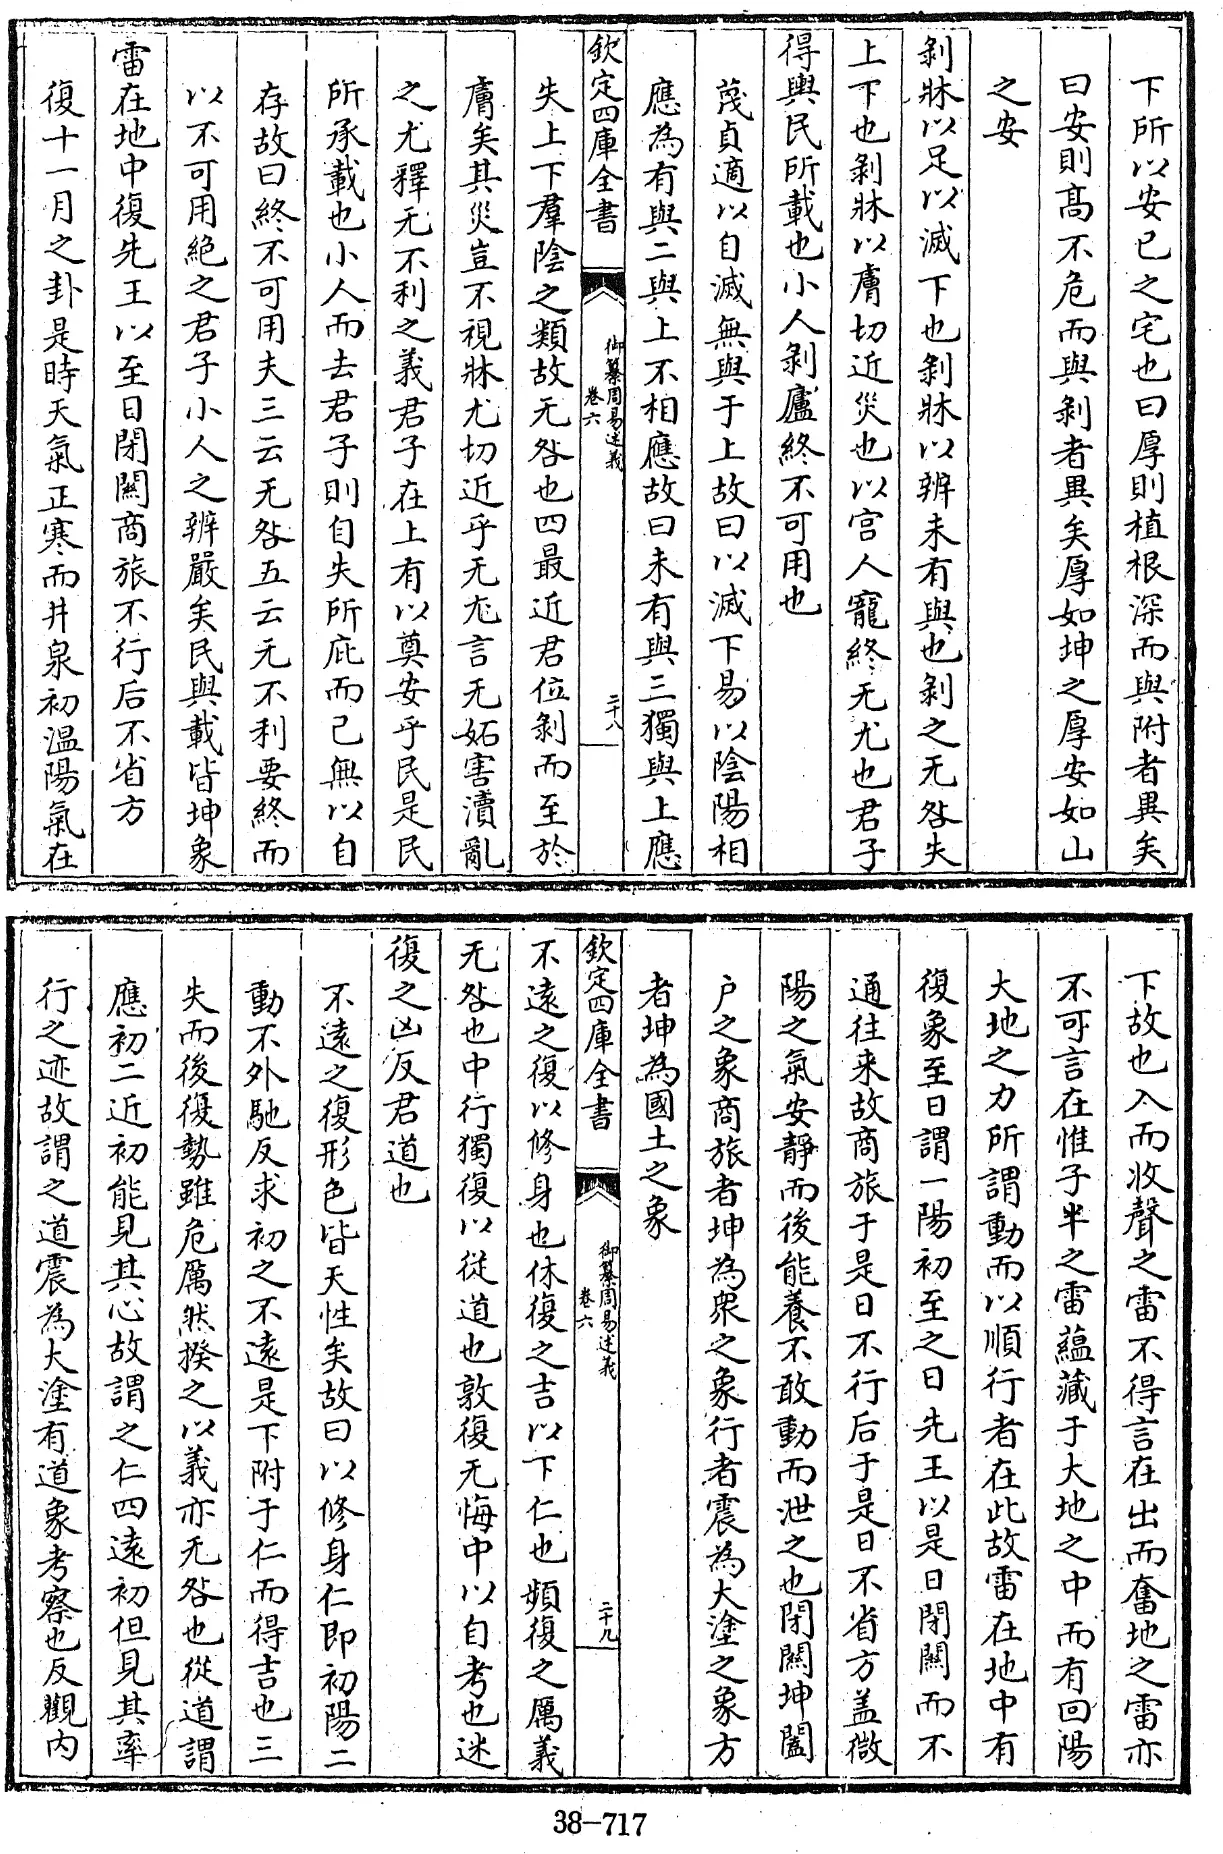 下所以安已之宅也曰厚則植根深而與附者異矣
曰安則髙不危而與剝者異矣厚如坤之厚安如山
之安
剝牀以足以滅下也剝牀以辨未有與也剝之无咎失
上下也剝牀以膚切近災也以宫人寵終无尤也君子
得輿民所載也小人剝廬終不可用也
蔑貞適以自滅無與于上故曰以滅下易以陰陽相
應為有與二與上不相應故曰未有與三獨與上應
欽定四庫全書
御纂周易述義
卷六
二十八
失上下羣陰之類故无咎也四最近君位剝而至於
膚矣其災豈不視牀尤切近乎无尤言无妬害瀆亂
之尤釋无不利之義君子在上有以奠安乎民是民
所承載也小人而去君子則自失所庇而已無以自
存故曰終不可用夫三云无咎五云无不利要終而
以不可用絶之君子小人之辨嚴矣民與載皆坤象
雷在地中復先王以至日閉闗商旅不行后不省方
復十一月之卦是時天氣正寒而井泉初温陽氣在
下故也入而收聲之雷不得言在出而奮地之雷亦
不可言在惟子半之雷藴藏于大地之中而有回陽
大地之力所謂動而以順行者在此故雷在地中有
復象至日謂一陽初至之日先王以是日閉闗而不
通往来故商旅于是日不行后于是日不省方盖微
陽之氣安靜而後能養不敢動而泄之也閉闗坤闔
户之象商旅者坤為衆之象行者震為大塗之象方
者坤為國土之象
欽定四庫全書
御纂周易述義
卷六
二十九
不遠之復以修身也休復之吉以下仁也頻復之厲義
无咎也中行獨復以從道也敦復无悔中以自考也迷
復之凶反君道也
不遠之復形色皆天性矣故曰以修身仁即初陽二
動不外馳反求初之不遠是下附于仁而得吉也三
失而後復勢雖危厲然揆之以義亦无咎也從道謂
應初二近初能見其心故謂之仁四遠初但見其率
行之迹故謂之道震為大塗有道象考察也反觀内
38-717